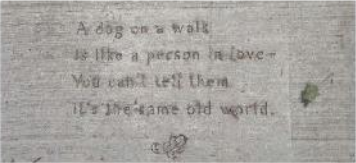 A dog on a walk
Is like a person in love -
You can't tell them
it's the same old world.